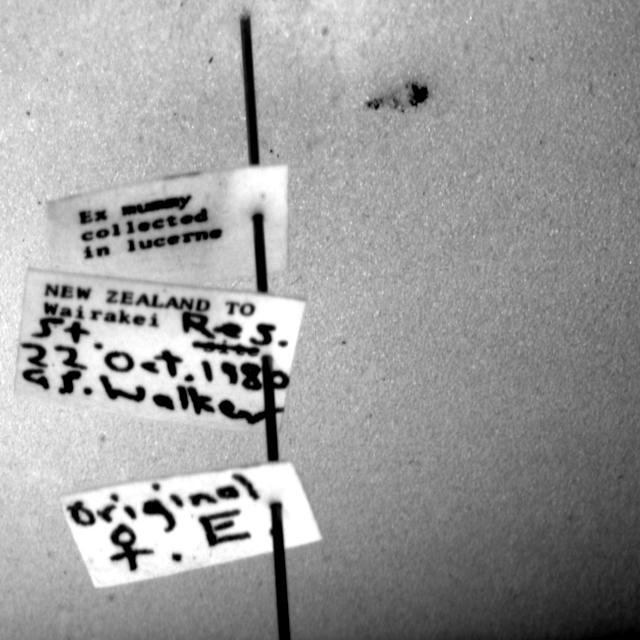 Ex mummy
collected
in lucerne
NEW ZEALAND TO
Wairakei Res.
St.
22.Oct.1980
Walker
Original
♀. E